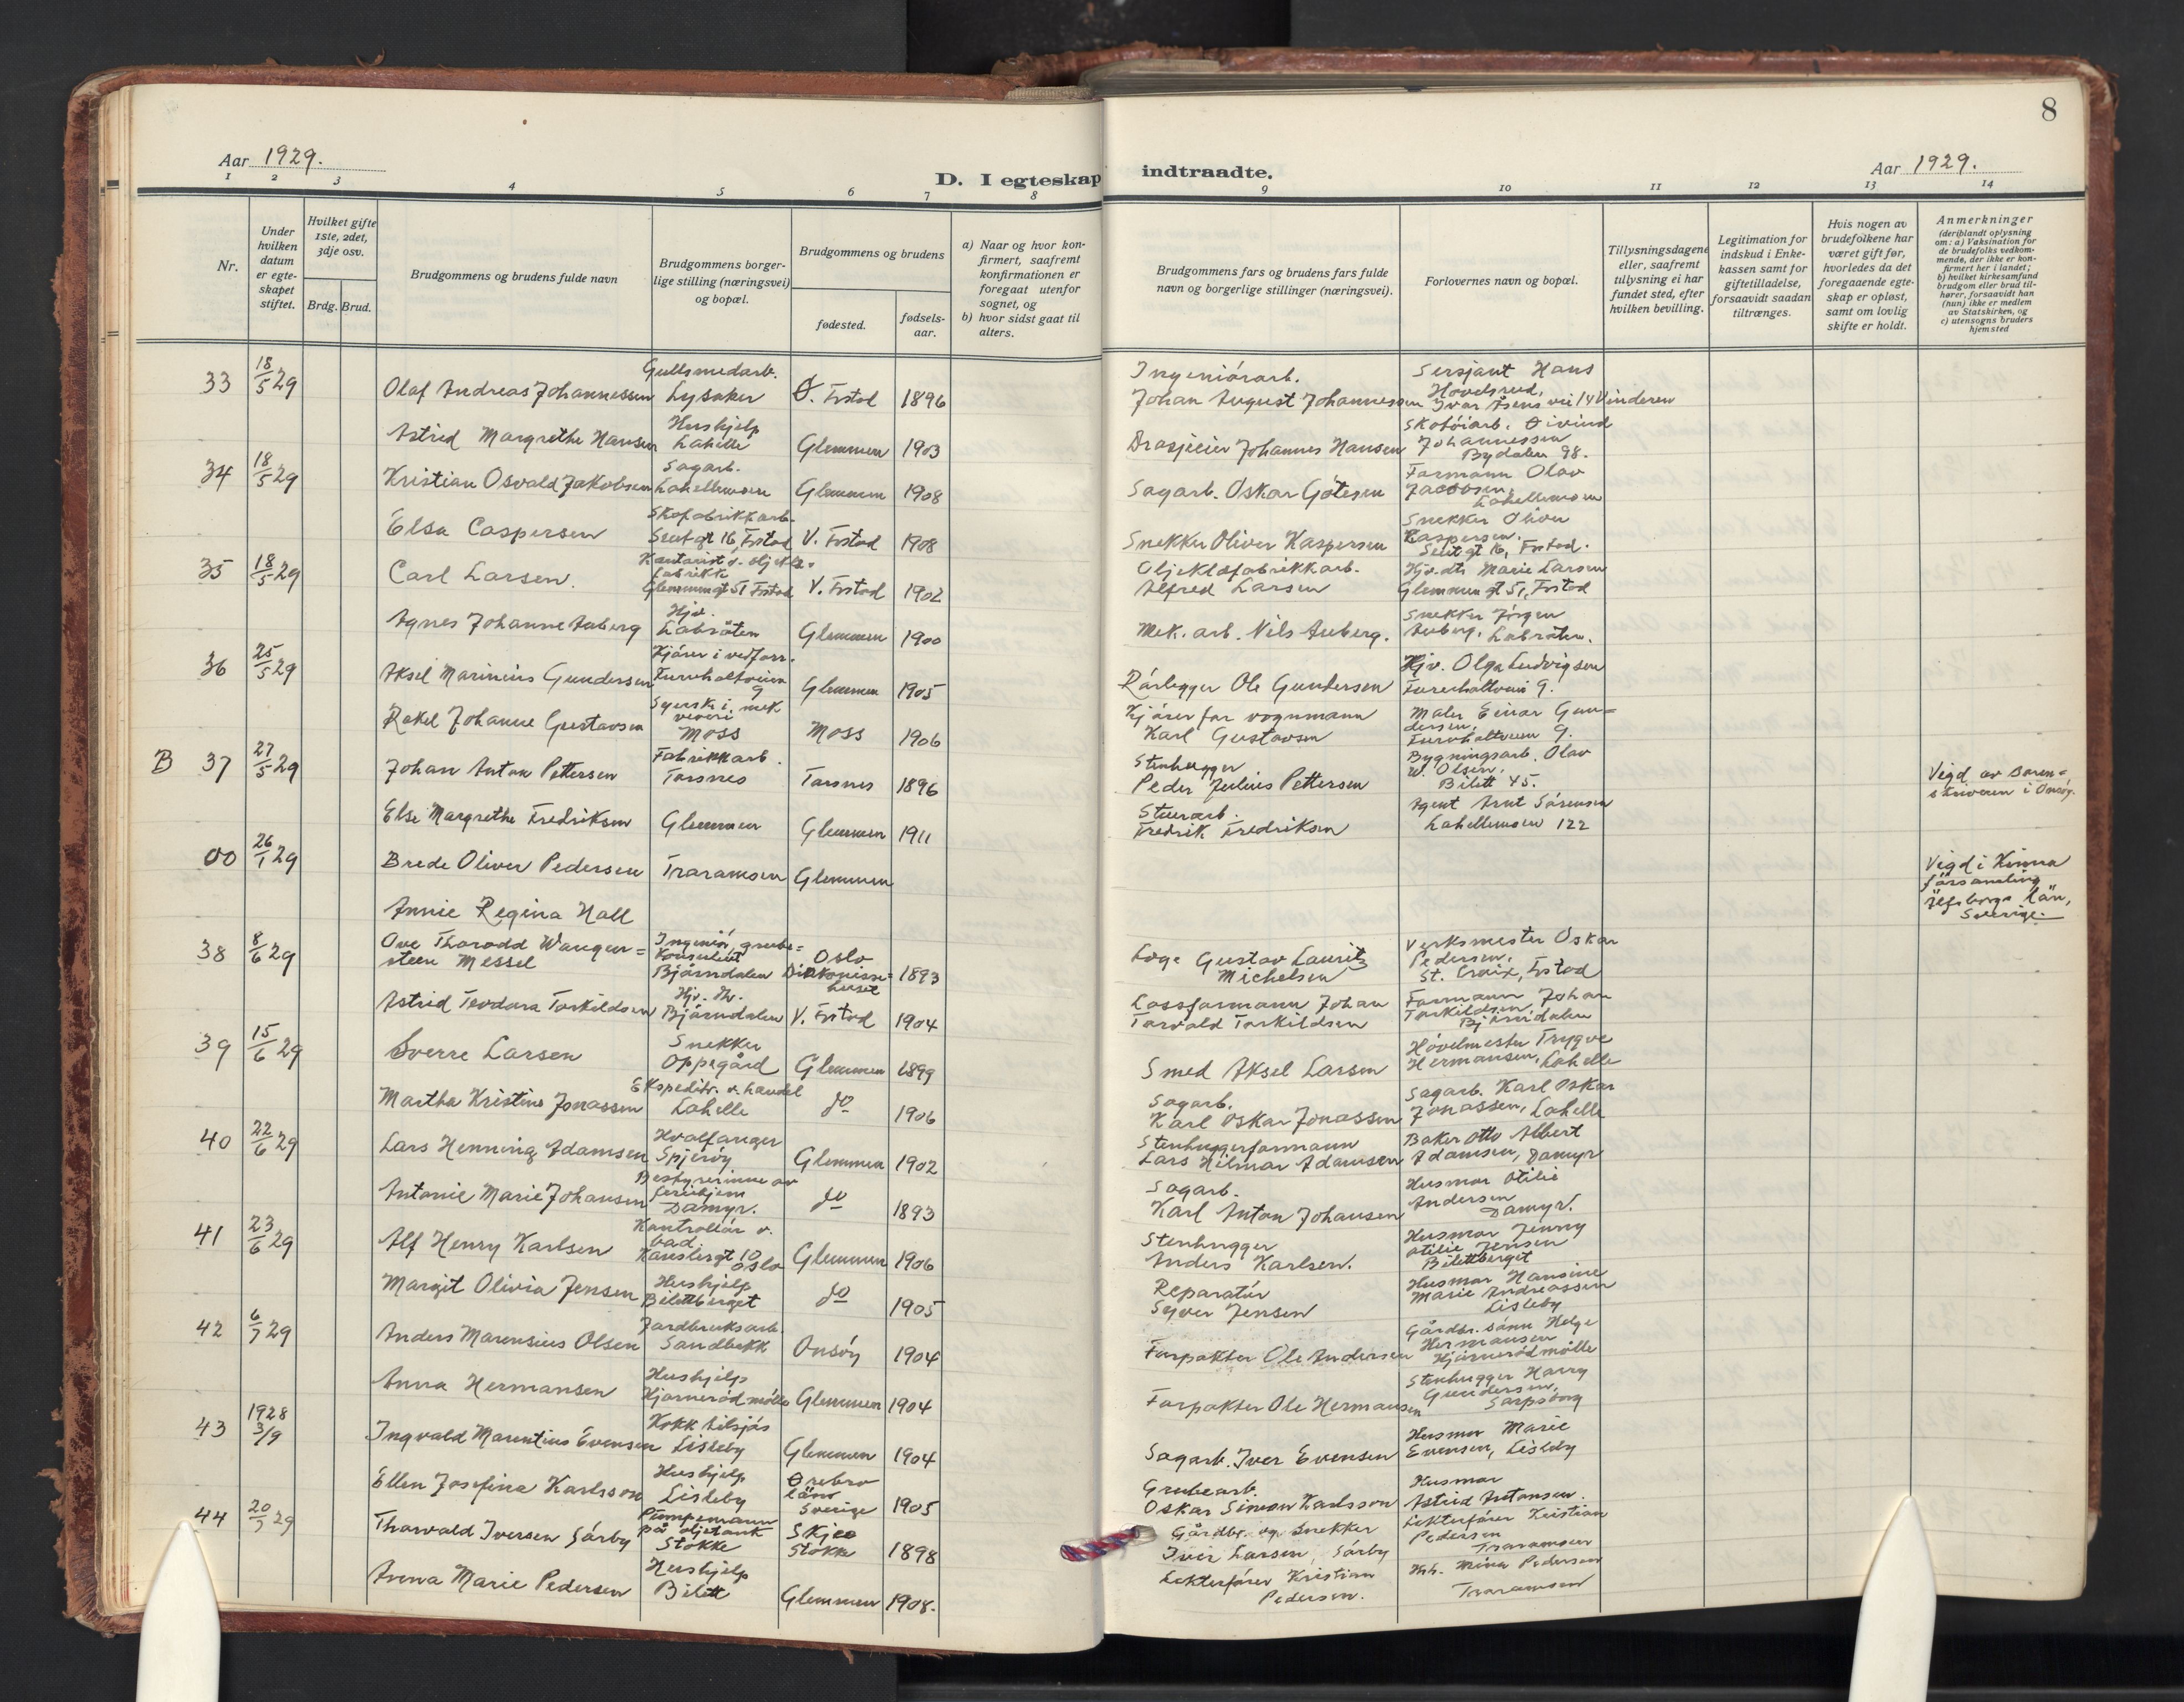 8
Aar 1929.
D. I egteskap indtraadte.
Aar 1929.
1 2 3 4 5 6 7 8 9 10 11 12 13 14
Nr.
Under hvilken datum er egteskapet stiftet.
Hvilket gifte 1ste, 2det, 3dje osv.
Brdg. Brud.
Brudgommens og brudens fulde navn
Brudgommens borgerlige stilling (næringsvei) og bopæl.
Brudgommens og brudens
fødested.
fødselsaar.
a) Naar og hvor konfirmert, saafremt konfirmationen er foregaat utenfor sognet, og
b) hvor sidst gaat til alters.
Brudgommens fars og brudens fars fulde navn og borgerlige stillinger (næringsvei).
Forlovernes navn og bopæl.
Tillysningsdagene eller, saafremt tillysning ei har fundet sted, efter hvilken bevilling.
Legitimation for indskud i Enkekassen samt for giftetilladelse, forsaavidt saadan tiltrænges.
Hvis nogen av brudefolkene har været gift før, hvorledes da det foregaaende egteskap er opløst, samt om lovlig skifte er holdt.
Anmerkninger (deriblandt oplysning om: a) Vaksination for de brudefolks vedkommende, der ikke er konfirmert her i landet; b) hvilket kirkesamfund brudgom eller brud tilhører, forsaavidt han (hun) ikke er medlem av Statskirken, og c) utensogns bruders hjemsted
33 18/5 29 Olaf Andreas Johannessen Gullsmedarb. Lysaker Ø. Frstad 1896 Ingeniörarb. Johan August Johannessen Sersjant Hans Hovelsrud, Ivar Åsens vei 14 Vinderen
Astrid Margrethe Hansen Hushjelp Lahelle Glemmen 1903 Drosjeeier Johannes Hansen Skotöiarb. Øivind Johannessen Bydalen 98.
34 18/5 29 Kristian Osvald Jakobsen Sagarb. Lahellemoen Glemmen 1908 Sagarb. Oskar Götesen Formann Olav Jacobsen, Lahellemoen
Elsa Caspersen Skofabrikkarb. gt 16, Frstad V. Frstad 1908 Snekker Oliver Kaspersen Snekker Oliver Kaspersen. gt 16, Frstad.
35 18/5 29 Carl Larsen. Kontorist v. oljekl. fabrikk Glemmengt 51 Frstad V. Frstad 1902 Oljeklæfabrikkarb. Alfred Larsen Hjv. dtr Marie Larsen Glemmen gt 51, Frstad
Agnes Johanne Auberg Hjv. Labråten Glemmen 1900 Mek. arb. Nils Auberg. Snekker Jörgen Auberg, Labråten.
36 25/5 29 Aksel Marinius Gundersen Kjörer i vedforr. Furuholtveien 9 Glemmen 1905 Rörlegger Ole Gundersen Hjv. Olga Ludvigsen Furuholtveien 9.
Rakel Johanne Gustavsen Syersk i mek veveri Moss Moss 1906 Kjörer for vognmann Karl Gustavsen Maler Einar Gundersen, Furuholtveien 9.
B 37 27/5 29 Johan Anton Pettersen Fabrikkarb. Torsnes Torsnes 1896 Stenhugger Peder Julius Pettersen Bygningsarb. Olav W. Olsen, Bilett 45. Vigd av Sorenskriveren i Onsöy.
Else Margrethe Fredriksen Glemmen Glemmen 1911 Stuerarb. Fredrik Fredriksen Agent Arnt Sörensen Lahellemoen 122
00 26/1 29 Brede Oliver Pedersen Traramoen Glemmen Vigd i Kinna församling älfsborgs län, Sverige.
Annie Regina Hall
38 8/6 29 Ove Thorodd Wangensteen Messel Ingeniör, grubekonsulent Björndalen Oslo Diakonissehuset 1893 Loge Gustav Lauritz Michelsen Verksmester Oskar Pedersen, St. Croix, Frstad
Astrid Teodora Torkildsen Hjv. dtr. Björndalen V. Frstad 1904 Lossformann Johan Torvald Torkildsen Formann Johan Torkildsen, Björndalen
39 15/6 29 Sverre Larsen Snekker Oppegård Glemmen 1899 Smed Aksel Larsen Hövelmester Trygve Hermansen, Lahelle
Martha Kristine Jonassen Ekspeditr. v. handel Lahelle do 1906 Sagarb. Karl Oskar Jonassen Sagarb. Karl Oskar Jonassen, Lahelle
40 22/6 29 Lars Henning Adamsen Hvalfanger Spjeröy Glemmen 1902 Stenhuggerformann Lars Hilmar Adamsen Baker Otto Albert Adamsen, Damyr
Antonie Marie Johansen Bestyrerinne av feriehjem Damyr. do 1893 Sagarb. Karl Anton Johansen Husmor Otilie Andersen Damyr.
41 23/6 29 Alf Henry Karlsen Kontrollör v. bad. gt 10 Oslo Glemmen 1906 Stenhugger Anders Karlsen. Husmor Jenny Otilie Jensen Bilettberget
Margit Olivia Jensen Hushjelp Bilettberget do 1905 Reparatör Syver Jensen Husmor Hansine Marie Andreassen Lisleby
42 6/7 29 Anders Marensius Olsen Jordbruksarb. Sandbekk Onsöy 1904 Forpakter Ole Andersen Gårdbr. sönn Helge Hermansen Hjörnerödmölle
Anna Hermansen Hushjelp Hjörnerödmölle Glemmen 1904 Forpakter Ole Hermansen Stenhugger Harry Gundersen, Sarpsborg
43 1928 3/9 Ingvald Marentius Evensen Kokk tilsjös Lisleby Glemmen 1904 Sagarb. Iver Evensen Husmor Marie Evensen, Lisleby
Ellen Josefina Karlsson Hushjelp Lisleby Örebro läns Sverige 1905 Grubearb. Oskar Simon Karlsson Husmor Astrid Antonsen.
44 20/7 29 Thorvald Iversen Sörby Pumpemann på oljetank Stokke Skjee Stokke 1898 Gårdbr. og snekker Iver Larsen, Sörby Lekterförer Kristian Pedersen Traramoen
Anna Marie Pedersen Hushjelp Bilett Glemmen 1908. Lekterförer Kristian Pedersen. Hh. Mina Pedersen Traramoen